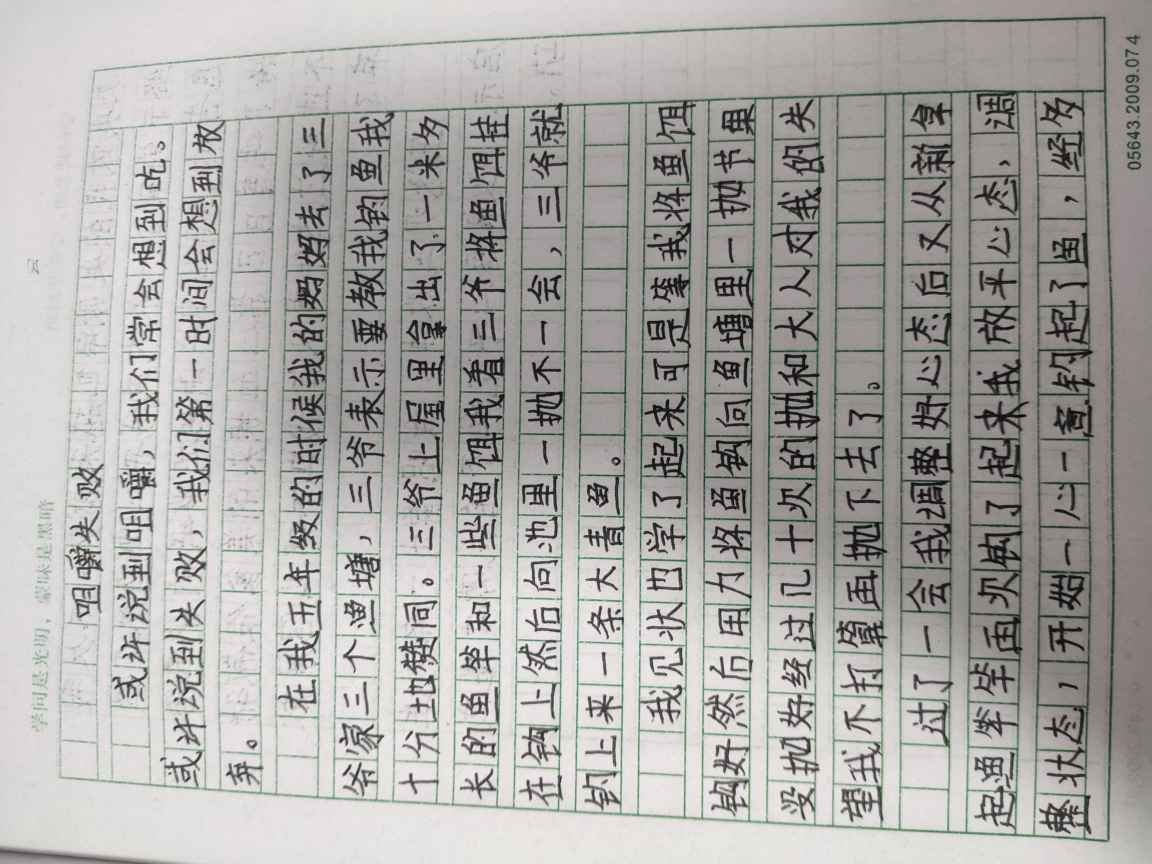 学问是光明，蒙昧是黑暗
咀嚼失败
或许说到咀嚼，我们常会想到吃。
或许说到失败，我们第一时间会想到放
弃。
在我五年级的时候我的妈妈去了三
爷家三个渔塘，三爷表示要教我钓鱼我
十分地赞同。三爷上屋里拿出了一米多
长的鱼竿和一些鱼饵我看三爷将鱼饵挂
在钩上然后向池里一抛不一会，三爷就
钓上来一条大青鱼。
我见状也学了起来可是等我将鱼饵
钩好然后用力将鱼钩向鱼塘里一抛节果
没抛好经过几十次的抛和大人对我的失
望我不打算再抛下去了。
过了一会我调整好心态后又从新拿
起渔竿竿再次钩了起来我放平心态，调
整状态，开始一心一意钓起了鱼，经多
05643.2009.074